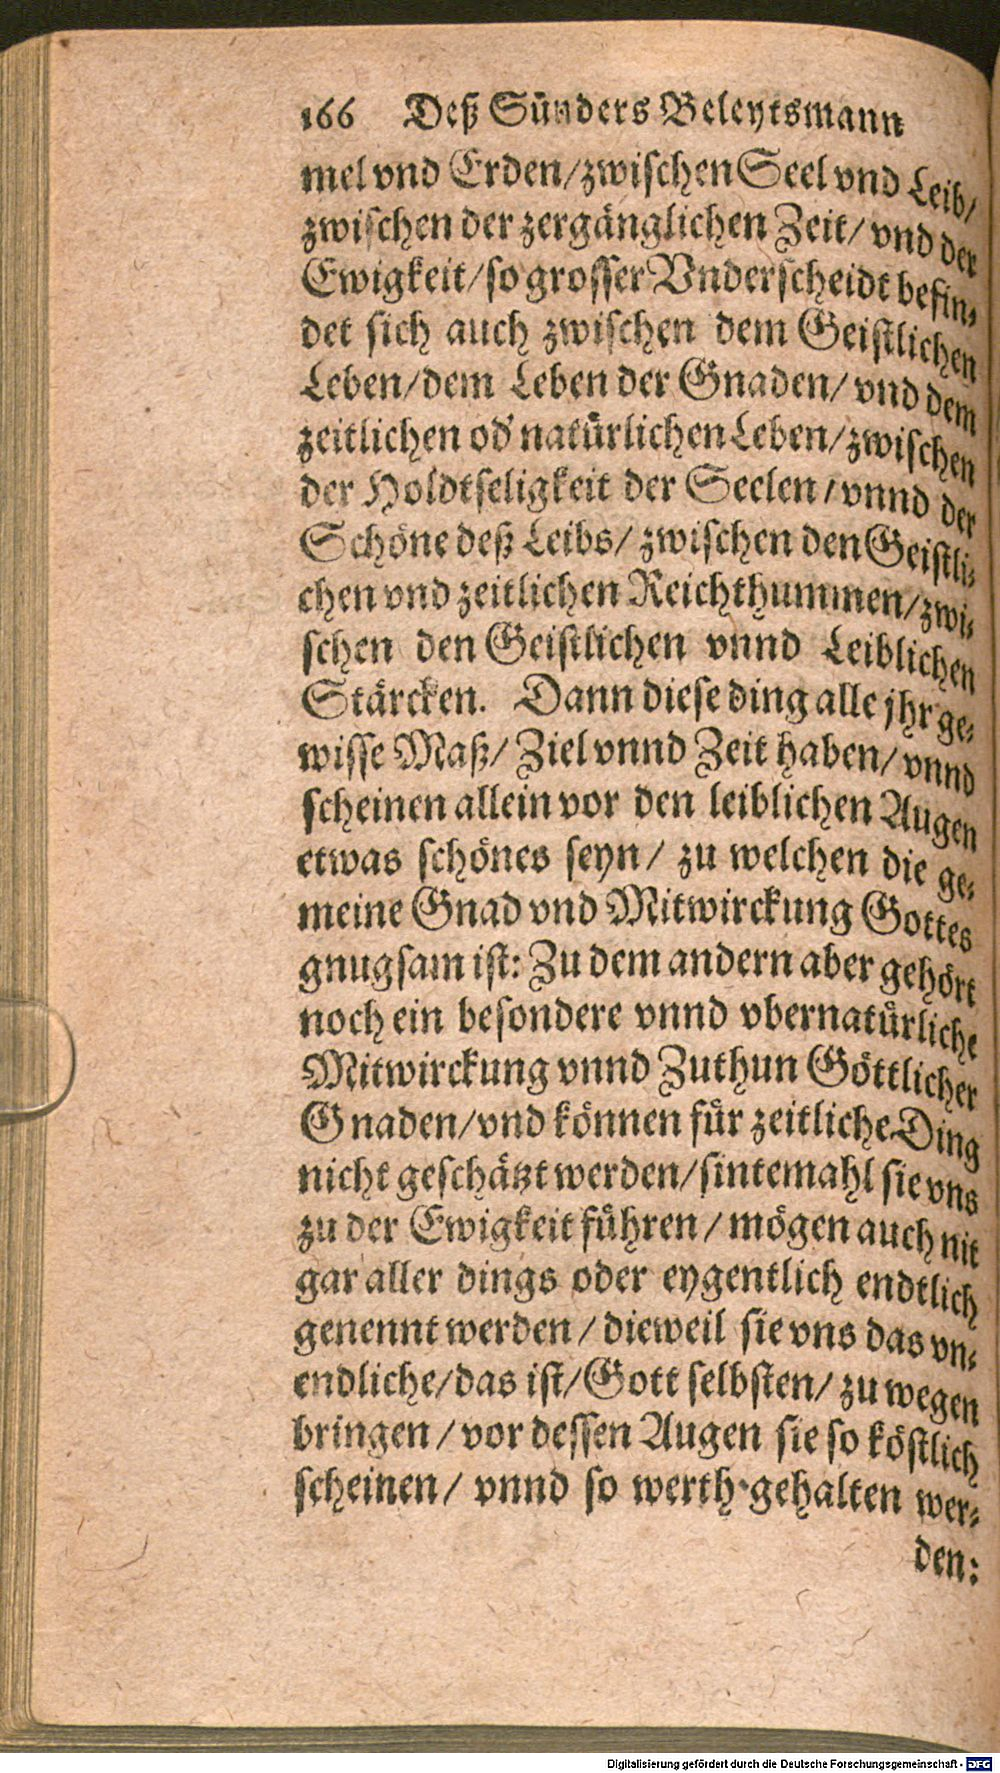 166 Deß Sünders Beleytsmann
mel vnd Erden/zwischen Seel vnd Leib/
zwischen der zergänglichen Zeit/ vnd der
Ewigkeit/so grosser Vnderscheidt befin-
det sich auch zwischen dem Geistlichen
Leben/dem Leben der Gnaden/ vnd dem
zeitlichen od' natürlichen Leben/zwischen
der Holdtseligkeit der Seelen / vnnd der
Schöne deß Leibs/ zwischen den Geistli-
chen vnd zeitlichen Reichthummen/zwi-
schen den Geistlichen vnnd Leiblichen
Stärcken. Dann diese ding alle jhr ge-
wisse Maß/ Ziel vnnd Zeit haben/ vnnd
scheinen allein vor den leiblichen Augen
etwas schönes seyn/ zu welchen die ge-
meine Gnad vnd Mitwirckung Gottes
gnugsam ist: Zu dem andern aber gehört
noch ein besondere vnnd vbernatürliche
Mitwirckung vnnd Zuthun Göttlicher
Gnaden/vnd können für zeitliche Ding
nicht geschätzt werden/sintemahl sie vns
zu der Ewigkeit führen / mögen auch nit
gar aller dings oder eygentlich endtlich
genennt werden / dieweil sie vns das vn-
endliche/das ist/Gott selbsten/ zu wegen
bringen / vor dessen Augen sie so köstlich
scheinen/ vnnd so werth gehalten wer-
den:
Digitalisierung gefördert durch die Deutsche Forschungsgemeinschaft - DFG